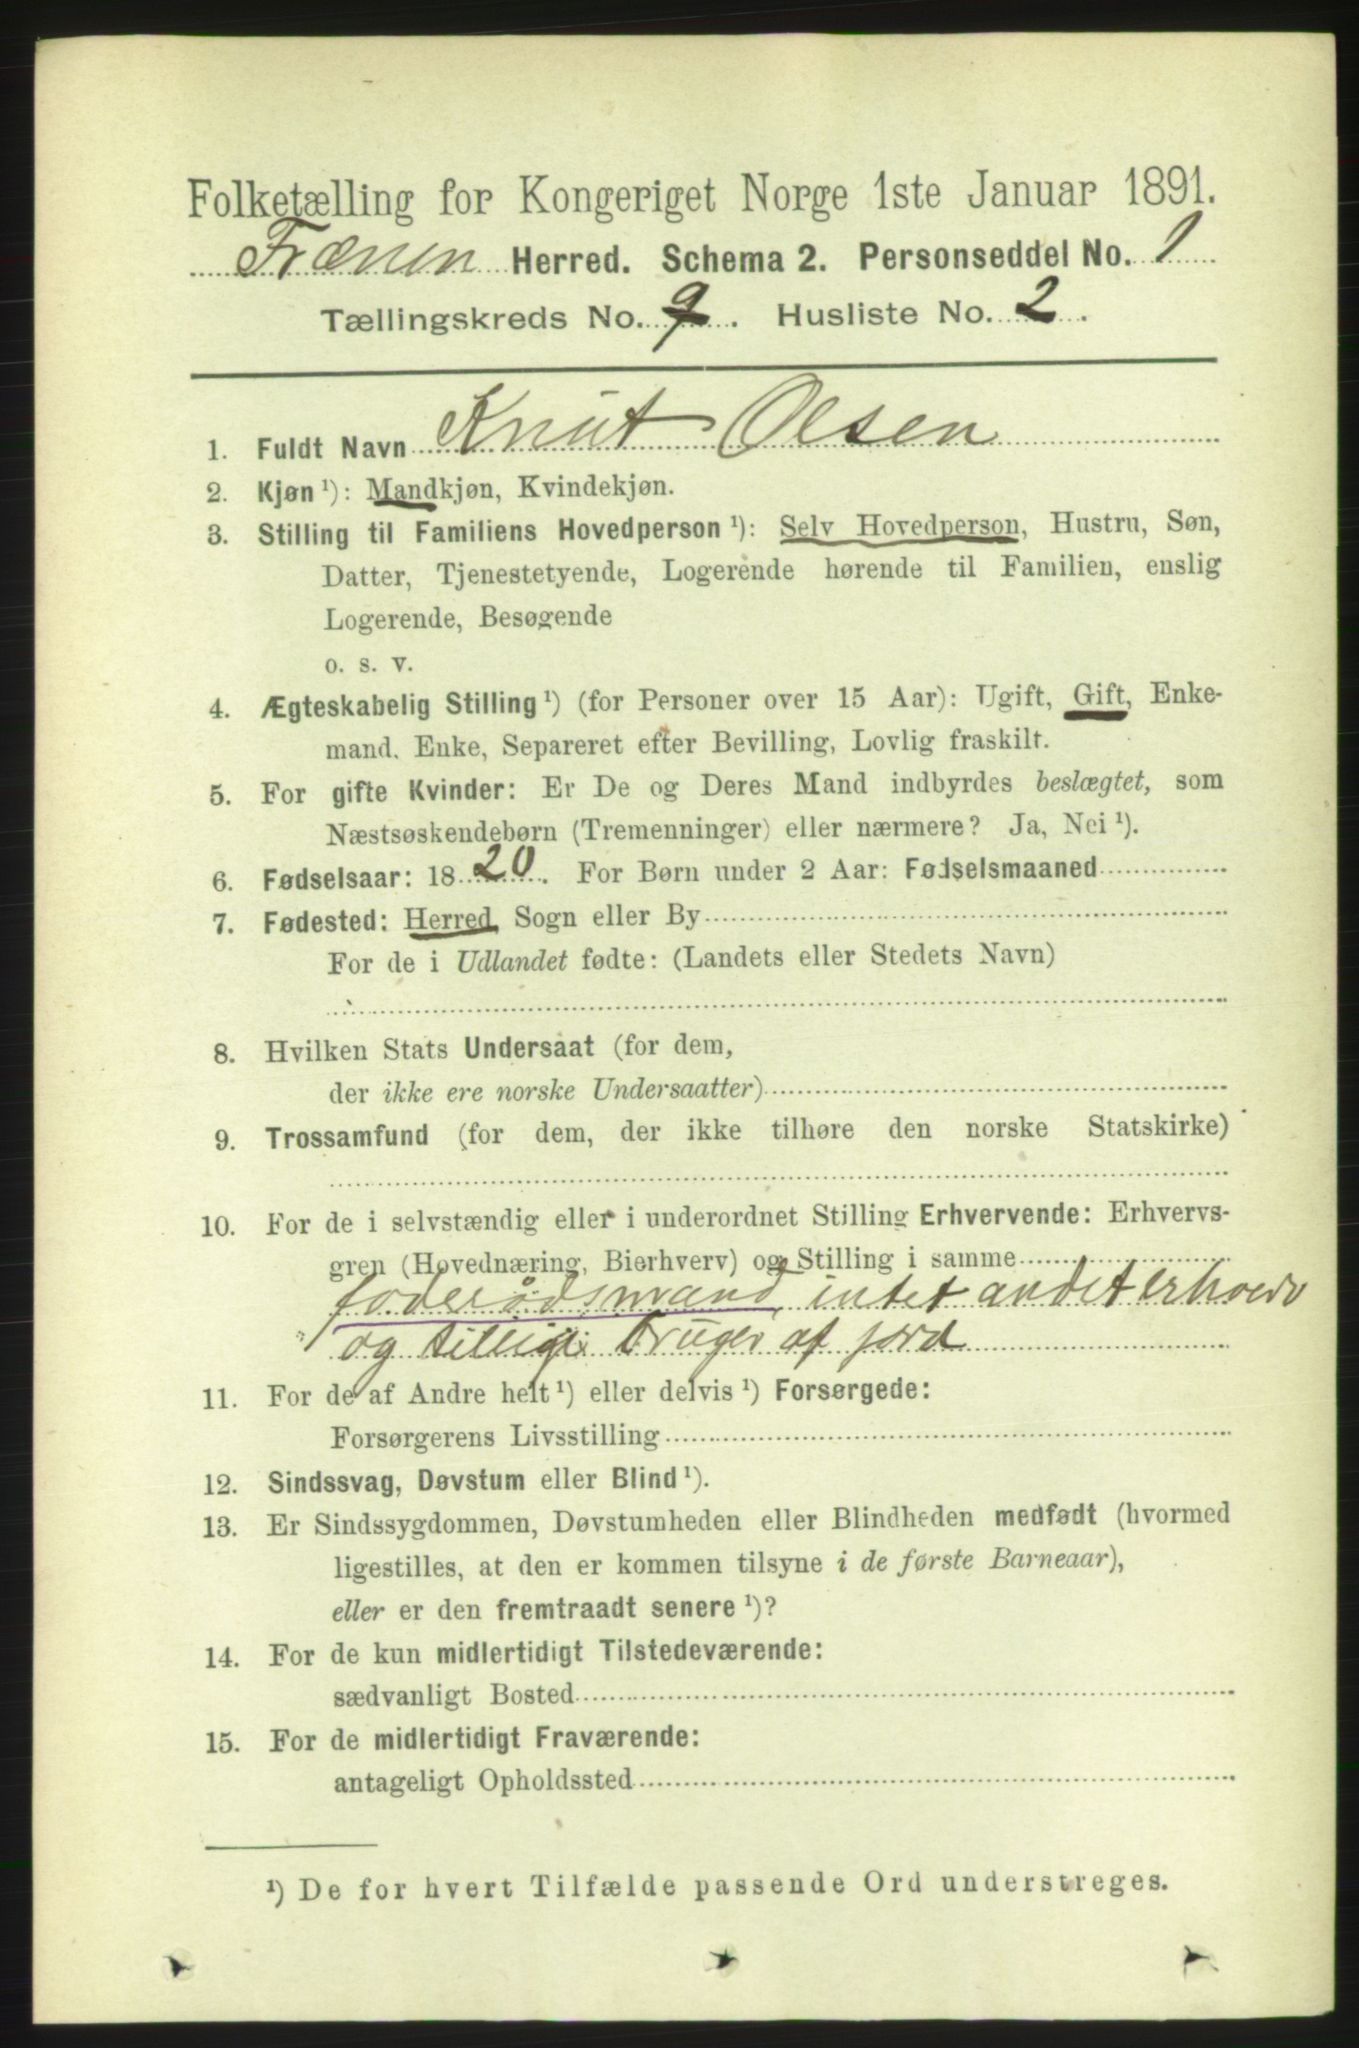 Folketælling for Kongeriget Norge 1ste Januar 1891.
Frænen Herred. Schema 2. Personseddel No. 1
Tællingskreds No. 9. Husliste No. 2.
Knut Olsen
1. Fuldt Navn
2. Kjøn ¹): Mandkjøn, Kvindekjøn.
3. Stilling til Familiens Hovedperson ¹): Selv Hovedperson, Hustru, Søn,
Datter, Tjenestetyende, Logerende hørende til Familien, enslig
Logerende, Besøgende
o. s. v.
4. Ægteskabelig Stilling ¹) (for Personer over 15 Aar): Ugift, Gift, Enke-
mand, Enke, Separeret efter Bevilling, Lovlig fraskilt.
5. For gifte Kvinder: Er De og Deres Mand indbyrdes beslægtet, som
Næstsøskendebørn (Tremenninger) eller nærmere? Ja, Nei ¹).
6. Fødselsaar: 1820. For Børn under 2 Aar: Fødselsmaaned
7. Fødested: Herred, Sogn eller By
For de i Udlandet fødte: (Landets eller Stedets Navn)
8. Hvilken Stats Undersaat (for dem,
der ikke ere norske Undersaatter)
9. Trossamfund (for dem, der ikke tilhøre den norske Statskirke)
10. For de i selvstændig eller i underordnet Stilling Erhvervende: Erhvervs-
gren (Hovednæring, Bierhverv) og Stilling i samme
føderådsmand, intet andet erhverv
og tillige bruger af jord
11. For de af Andre helt ¹) eller delvis ¹) Forsørgede:
Forsørgerens Livsstilling
12. Sindssvag, Døvstum eller Blind ¹).
13. Er Sindssygdommen, Døvstumheden eller Blindheden medfødt (hvormed
ligestilles, at den er kommen tilsyne i de første Barneaar),
eller er den fremtraadt senere ¹)?
14. For de kun midlertidigt Tilstedeværende:
sædvanligt Bosted
15. For de midlertidigt Fraværende:
antageligt Opholdssted
¹) De for hvert Tilfælde passende Ord understreges.